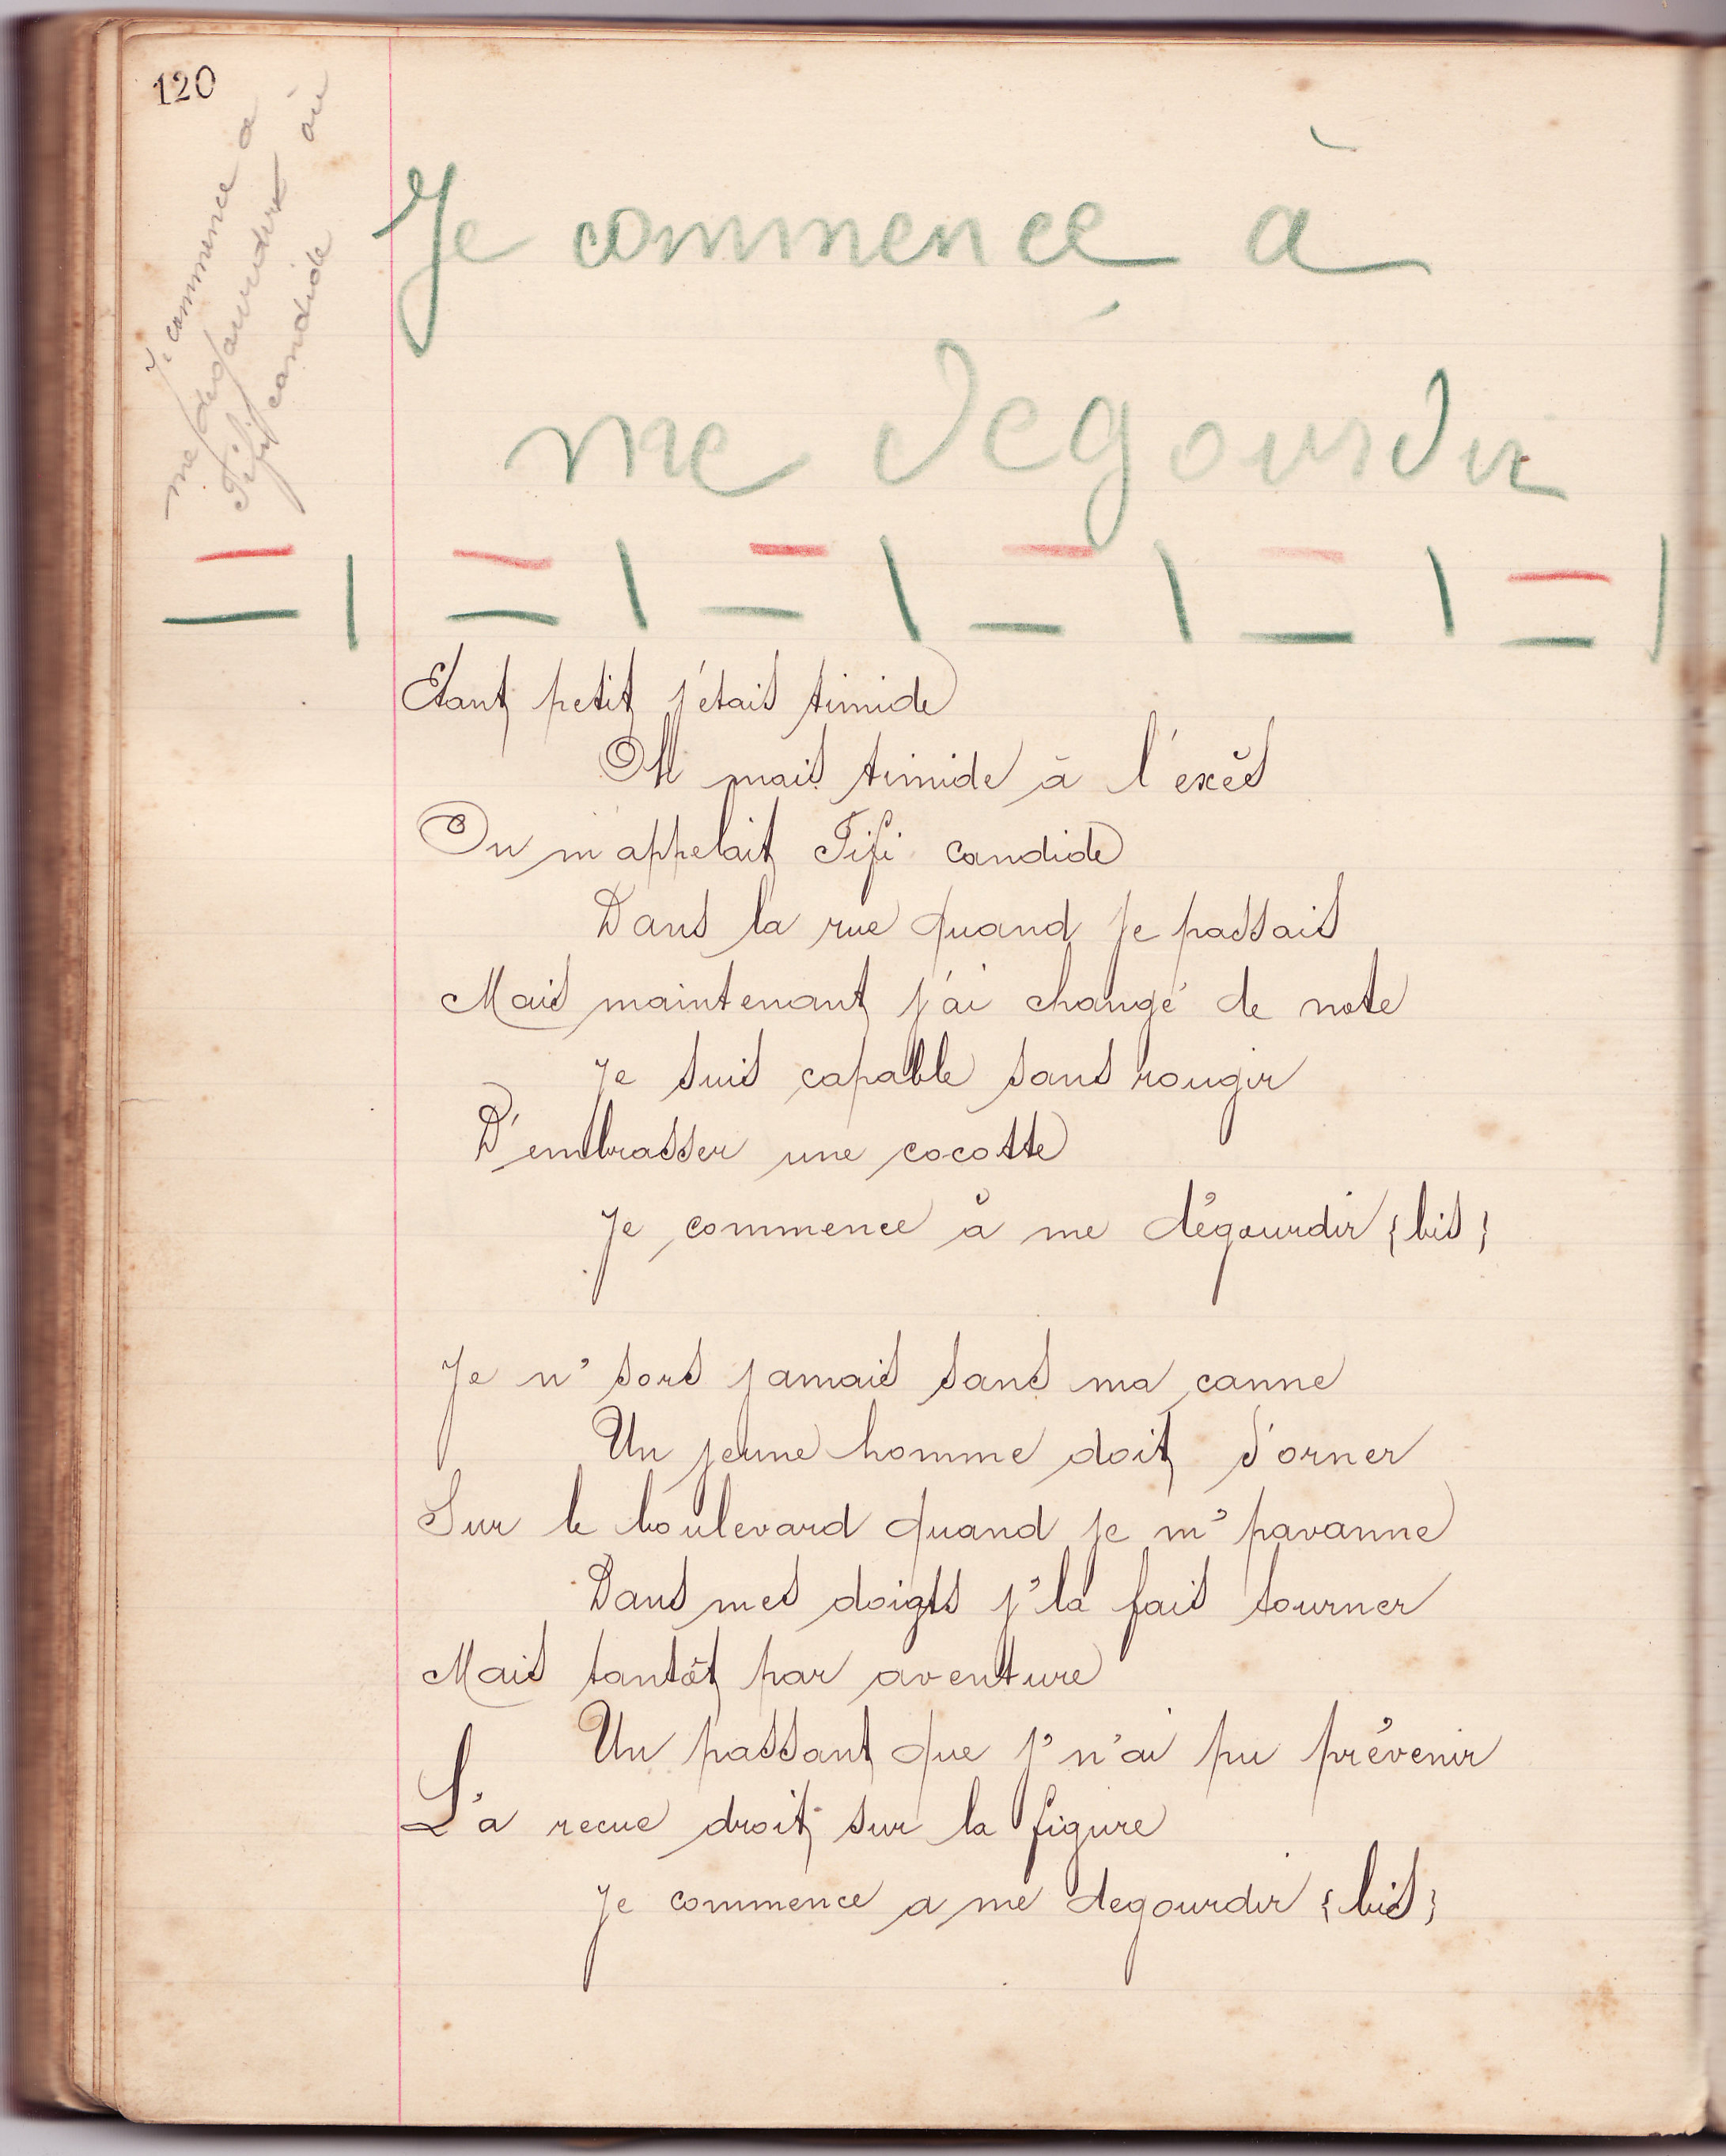 120
Je commence a
me degourdir ou
Fifi candide
Je commence à
me dégourdir
Etant petit j'étais timide
Oh mais timide à l'exès
On m'appelait Fifi candide
Dans la rue quand je passais
Mais maintenant j'ai changé de note
Je suis capable sans rougir
D'embrasser une cocotte
Je commence à me dégourdir {bis}
Je n' sors jamais sans ma canne
Un jeune homme doit s'orner
Sur le boulevard quand je m' pavanne
Dans mes doigts j' la fais tourner
Mais tantôt par aventure
Un passant que j' n'ai pu prévenir
L'a recue droit sur la figure
Je commence a me degourdir {bis}